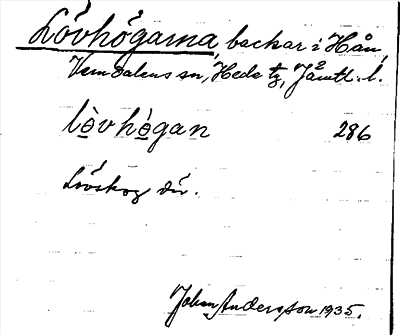 Lövhögarna, backar i Hån,
Vemdalens sn, Hede tg, Jämtl. l.
lövhögan 286
Lövskog där.
Johan Andersson 1935.